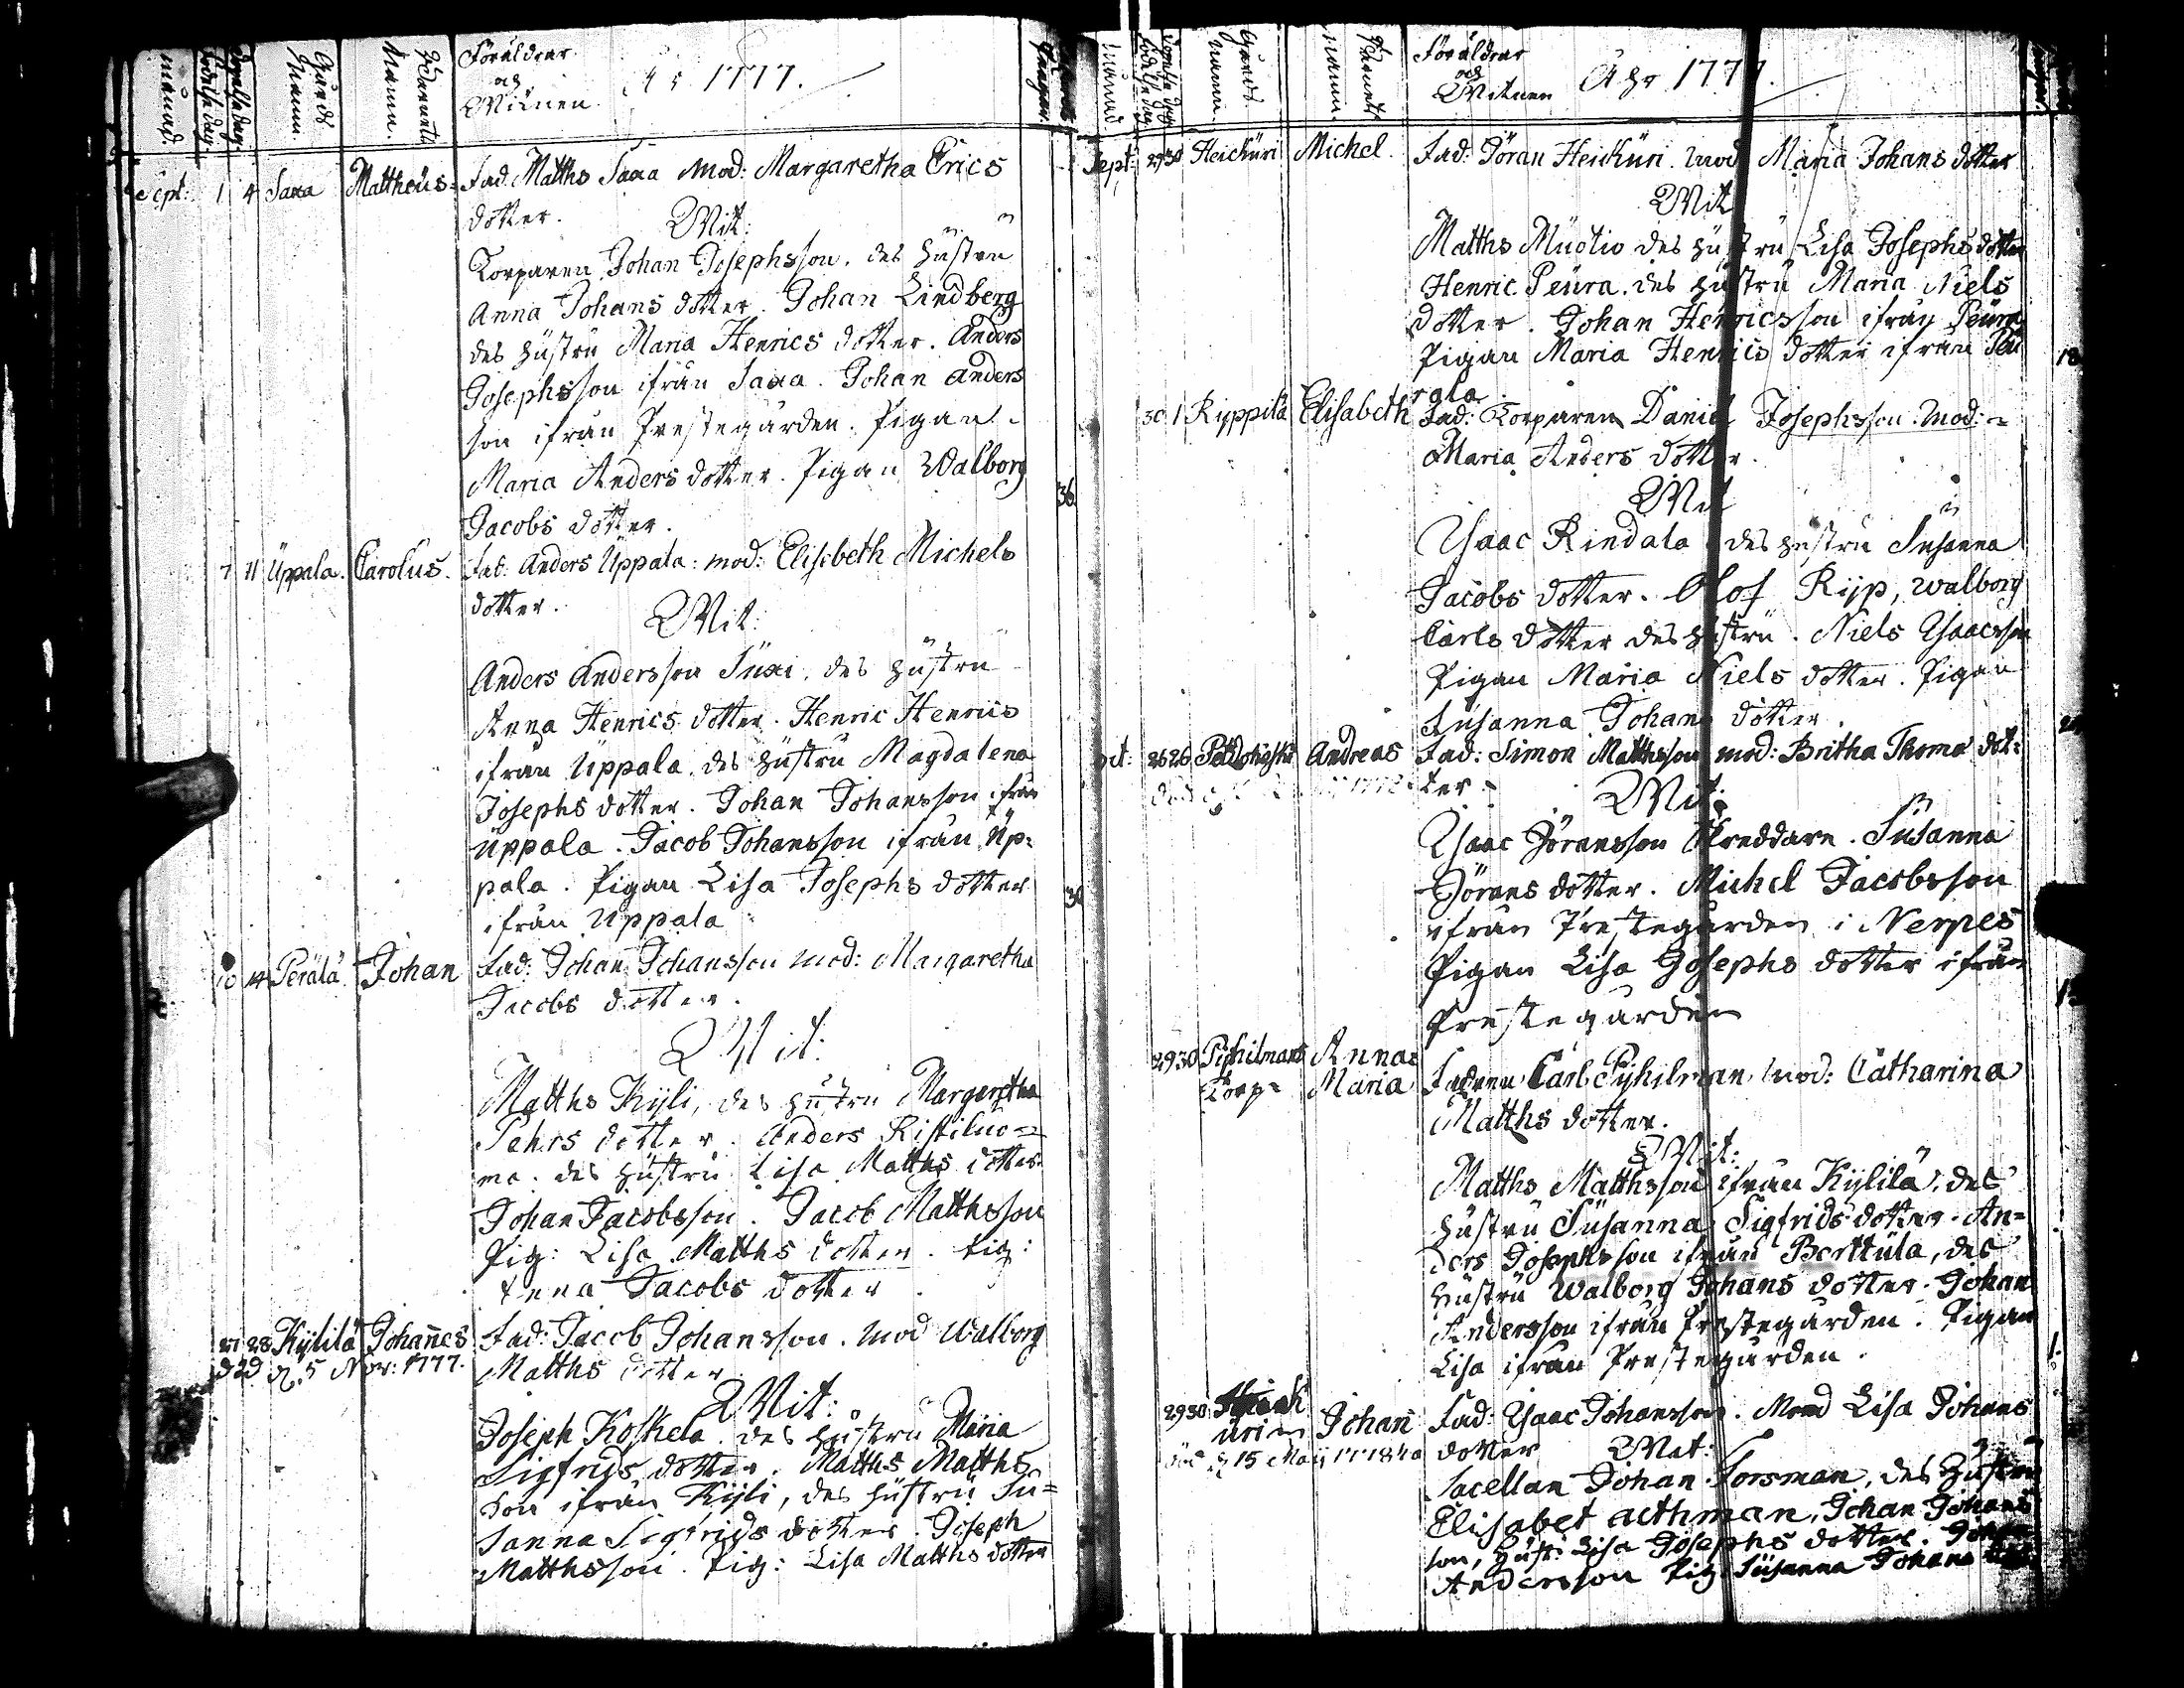 månad.
Födelse dag.
Döpelse dag.
Gårds namn.
Barnets namn.
Föräldrar
och
Witnen. A:o 1777.
Sept: 1 4 Saxa Mattheüs. Fad: Matths Saxa Mod: Margaretha Erics
dotter.
Wit:
Torparen Johan Josephsson. des hüstrü
Anna Johans dotter. Johan Lindberg
des hüstrü Maria Henrics dotter. Anders
Josephsson ifrån Saxa. Johan Anders
son ifrån Prestegården. Pigan
Maria Anders dotter. Pigan Walborg
Jacobs dotter.
36
7 11 Üppala. Carolüs. Fad: Anders Üppala: mod: Elisebeth Michels
dotter.
Wit:
Anders Andersson Süxi. des hüstrü
Anna Henrics dotter. Henric Henrics
ifrån Üppala. des hüstrü Magdalena
Josephs dotter. Johan Johansson ifrån
Üppala. Jacob Johansson ifrån Üp=
pala. Pigan Lisa Josephs dotter
ifrån Üppala
10 14 Perälä Johan Fad: Johan Johansson Mod: Margaretha
Jacobs dotter.
Wit:
Matths Kÿli, des hüstrü Margaretha
Pehrs dotter. Anders Ristiluo=
ma. des hüstrü Lisa Matths dotter.
Johan Jacobsson. Jacob Matthsson
Pig: Lisa Matths dotter. Pig:
Anna Jacobs dotter
27 28 Kÿlilä Johannes Fad: Jacob Johansson. Mod Walborg
död d. 5 Nov: 1777. Matths dotter
Wit:
Joseph Koskela. des hüstrü Maria
Sigfrids dotter. Matths Matths
son ifrån Kÿli, des hüstrü Sü=
sanna Sigfrids dotter. Joseph
Matthsson. Pig: Lisa Matths dotter
månad
Gårds namn.
Barnets namn
Föräldrar
och
Witnen A:o 1777.
Sept: 29 30 Heiküri Michel. Fad: Göran Heiküri. Mod Maria Johans dotter
Wit
Matths Müotio des hüstrü Lisa Josephs dotter
Henric Peüra. des hüstrü Maria Niels
dotter. Johan Henricsson ifrån Peüra
Pigan Maria Henrics dotter ifrån Peü
rala
30 1 Rÿppilä Elisabeth Fad: Torparen Daniel Josephsson. Mod:
Maria Anders dotter.
Wit
Ysaac Rindala des hüstrü Süsanna
Jacobs dotter. Olof Rÿp, Walborg
Carls dotter des hüstrü. Niels Ysaacsson
Pigan Maria Niels dotter. Pigan
Süsanna Johans dotter.
Oct: 26 26 Andreas Fad: Simon Matthsson mod: Britha Thoma dot=
ter.
Wit:
Ysaac Göransson Skreddare. Süsanna
Görans dotter. Michel Jacobsson
ifrån Prestegården i Nerpes
Pigan Lisa Josephs dotter ifrån
Prestegården
29 30 Pihilmans Torp= Anna Maria Fadren Carl Pÿhilman Mod: Catharina
Matths dotter.
Wit:
Matths Matthsson ifrån Kÿlilä, des
hüstrü Süsanna Sigfrids dotter. An=
ders Josephsson ifrån Berttüla, des
hüstrü Walborg Johans dotter. Johan
Andersson ifrån Prestegården. Pigan
Lisa ifrån Prestegården.
29 30 Johan Fad: Ysaac Johansson. Mod Lisa Johans
15 Maÿ dotter Wit:
Sacellan Johan Forsman, des hüstrü
Elisabet Aethman, Johan Johans
son, hüst: Lisa Josephs dotter. Johan
Andersson Pig: Süsanna Johans